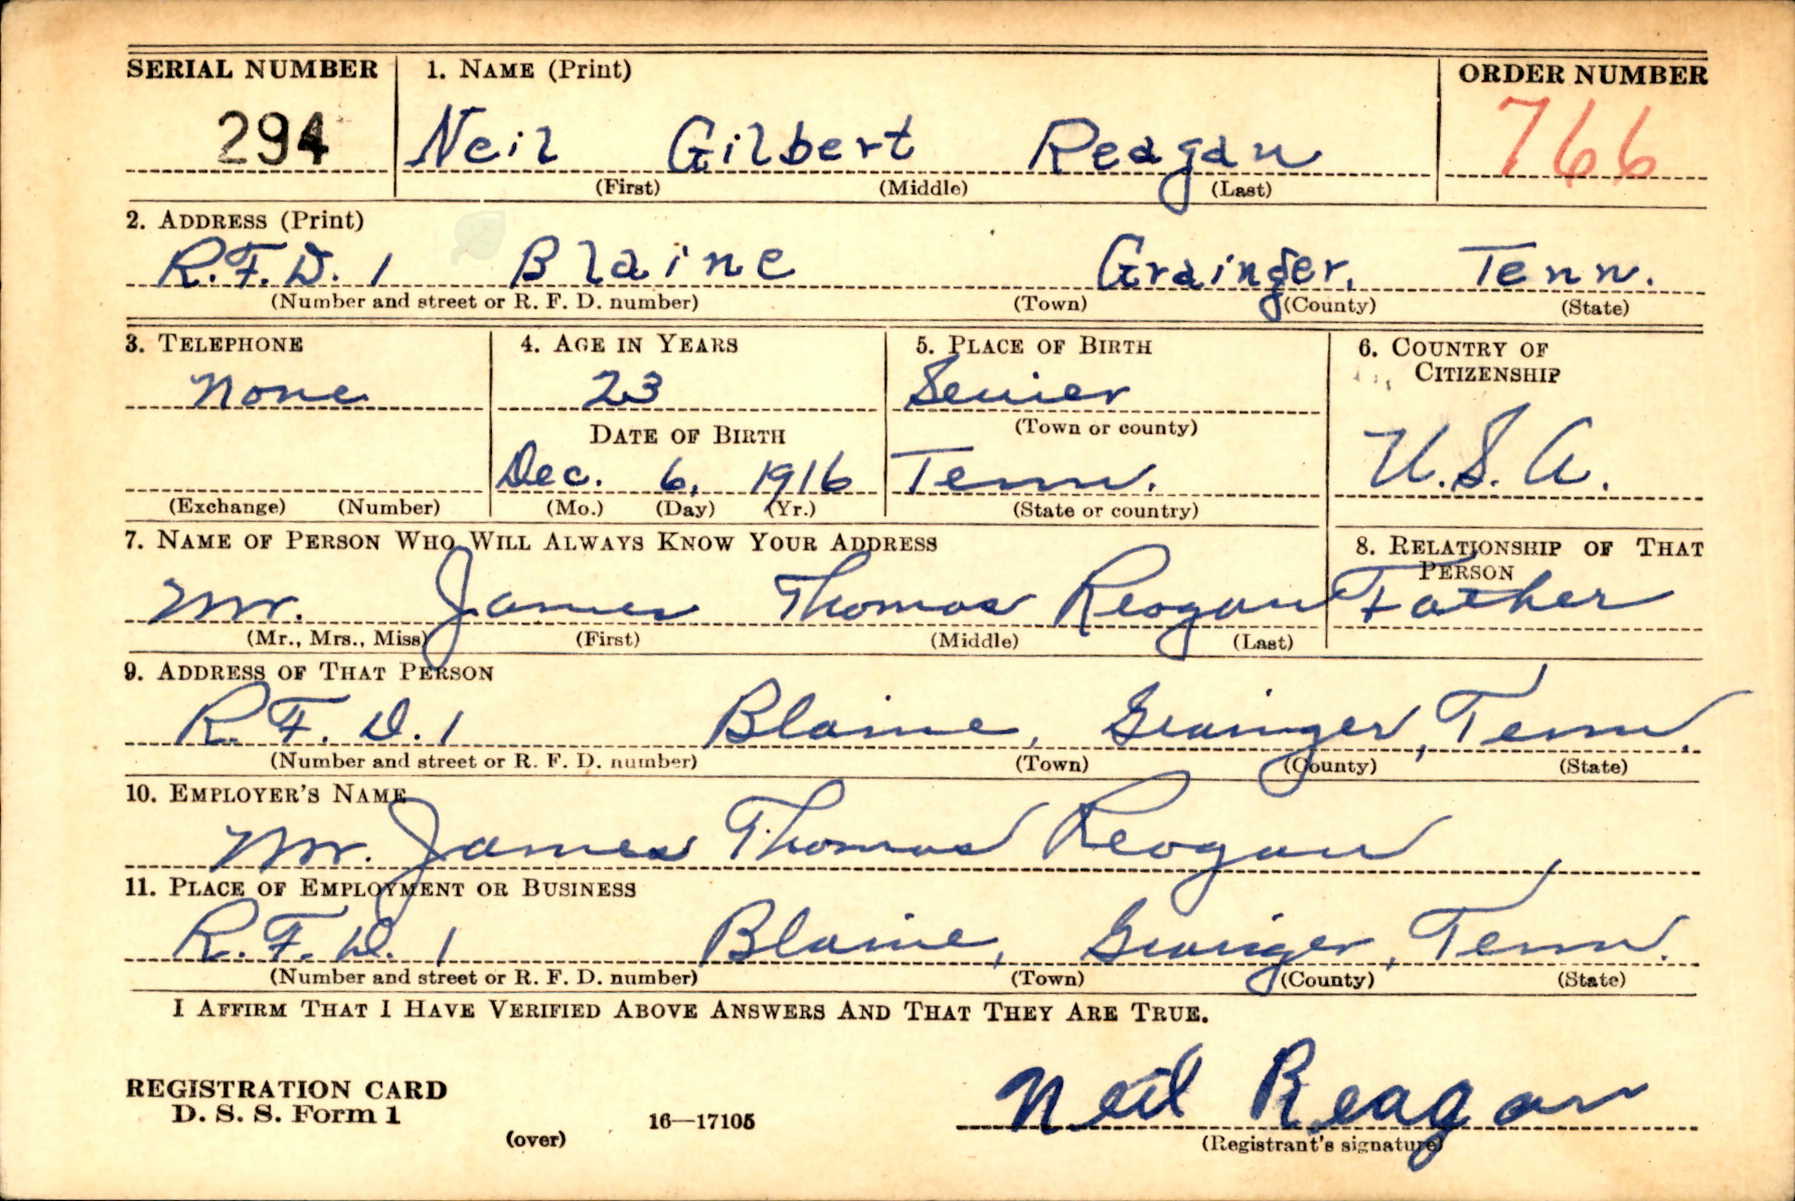 SERIAL NUMBER 1. NAME (Print) ORDER NUMBER
294 Neil Gilbert Reagan 766
(First) (Middle) (Last)
2. ADDRESS (Print)
R.F.D. 1 Blaine Grainger, Tenn.
(Number and street or R. F. D. number) (Town) (County) (State)
3. TELEPHONE 4. AGE IN YEARS 5. PLACE OF BIRTH 6. COUNTRY OF
CITIZENSHIP
None 23 Sevier
DATE OF BIRTH (Town or county)
U.S.A.
Dec. 6, 1916 Tenn.
(Exchange) (Number) (Mo.) (Day) (Yr.) (State or country)
7. NAME OF PERSON WHO WILL ALWAYS KNOW YOUR ADDRESS 8. RELATIONSHIP OF THAT
PERSON
Mr. James Thomas Reagan Father
(Mr., Mrs., Miss) (First) (Middle) (Last)
9. ADDRESS OF THAT PERSON
R.F.D. 1 Blaine, Grainger, Tenn.
(Number and street or R. F. D. number) (Town) (County) (State)
10. EMPLOYER'S NAME
Mr. James Thomas Reagan
11. PLACE OF EMPLOYMENT OR BUSINESS
R.F.D. 1 Blaine, Grainger, Tenn.
(Number and street or R. F. D. number) (Town) (County) (State)
I AFFIRM THAT I HAVE VERIFIED ABOVE ANSWERS AND THAT THEY ARE TRUE.
REGISTRATION CARD
D. S. S. Form 1 16—17105 Neil Reagan
(over) (Registrant's signature)